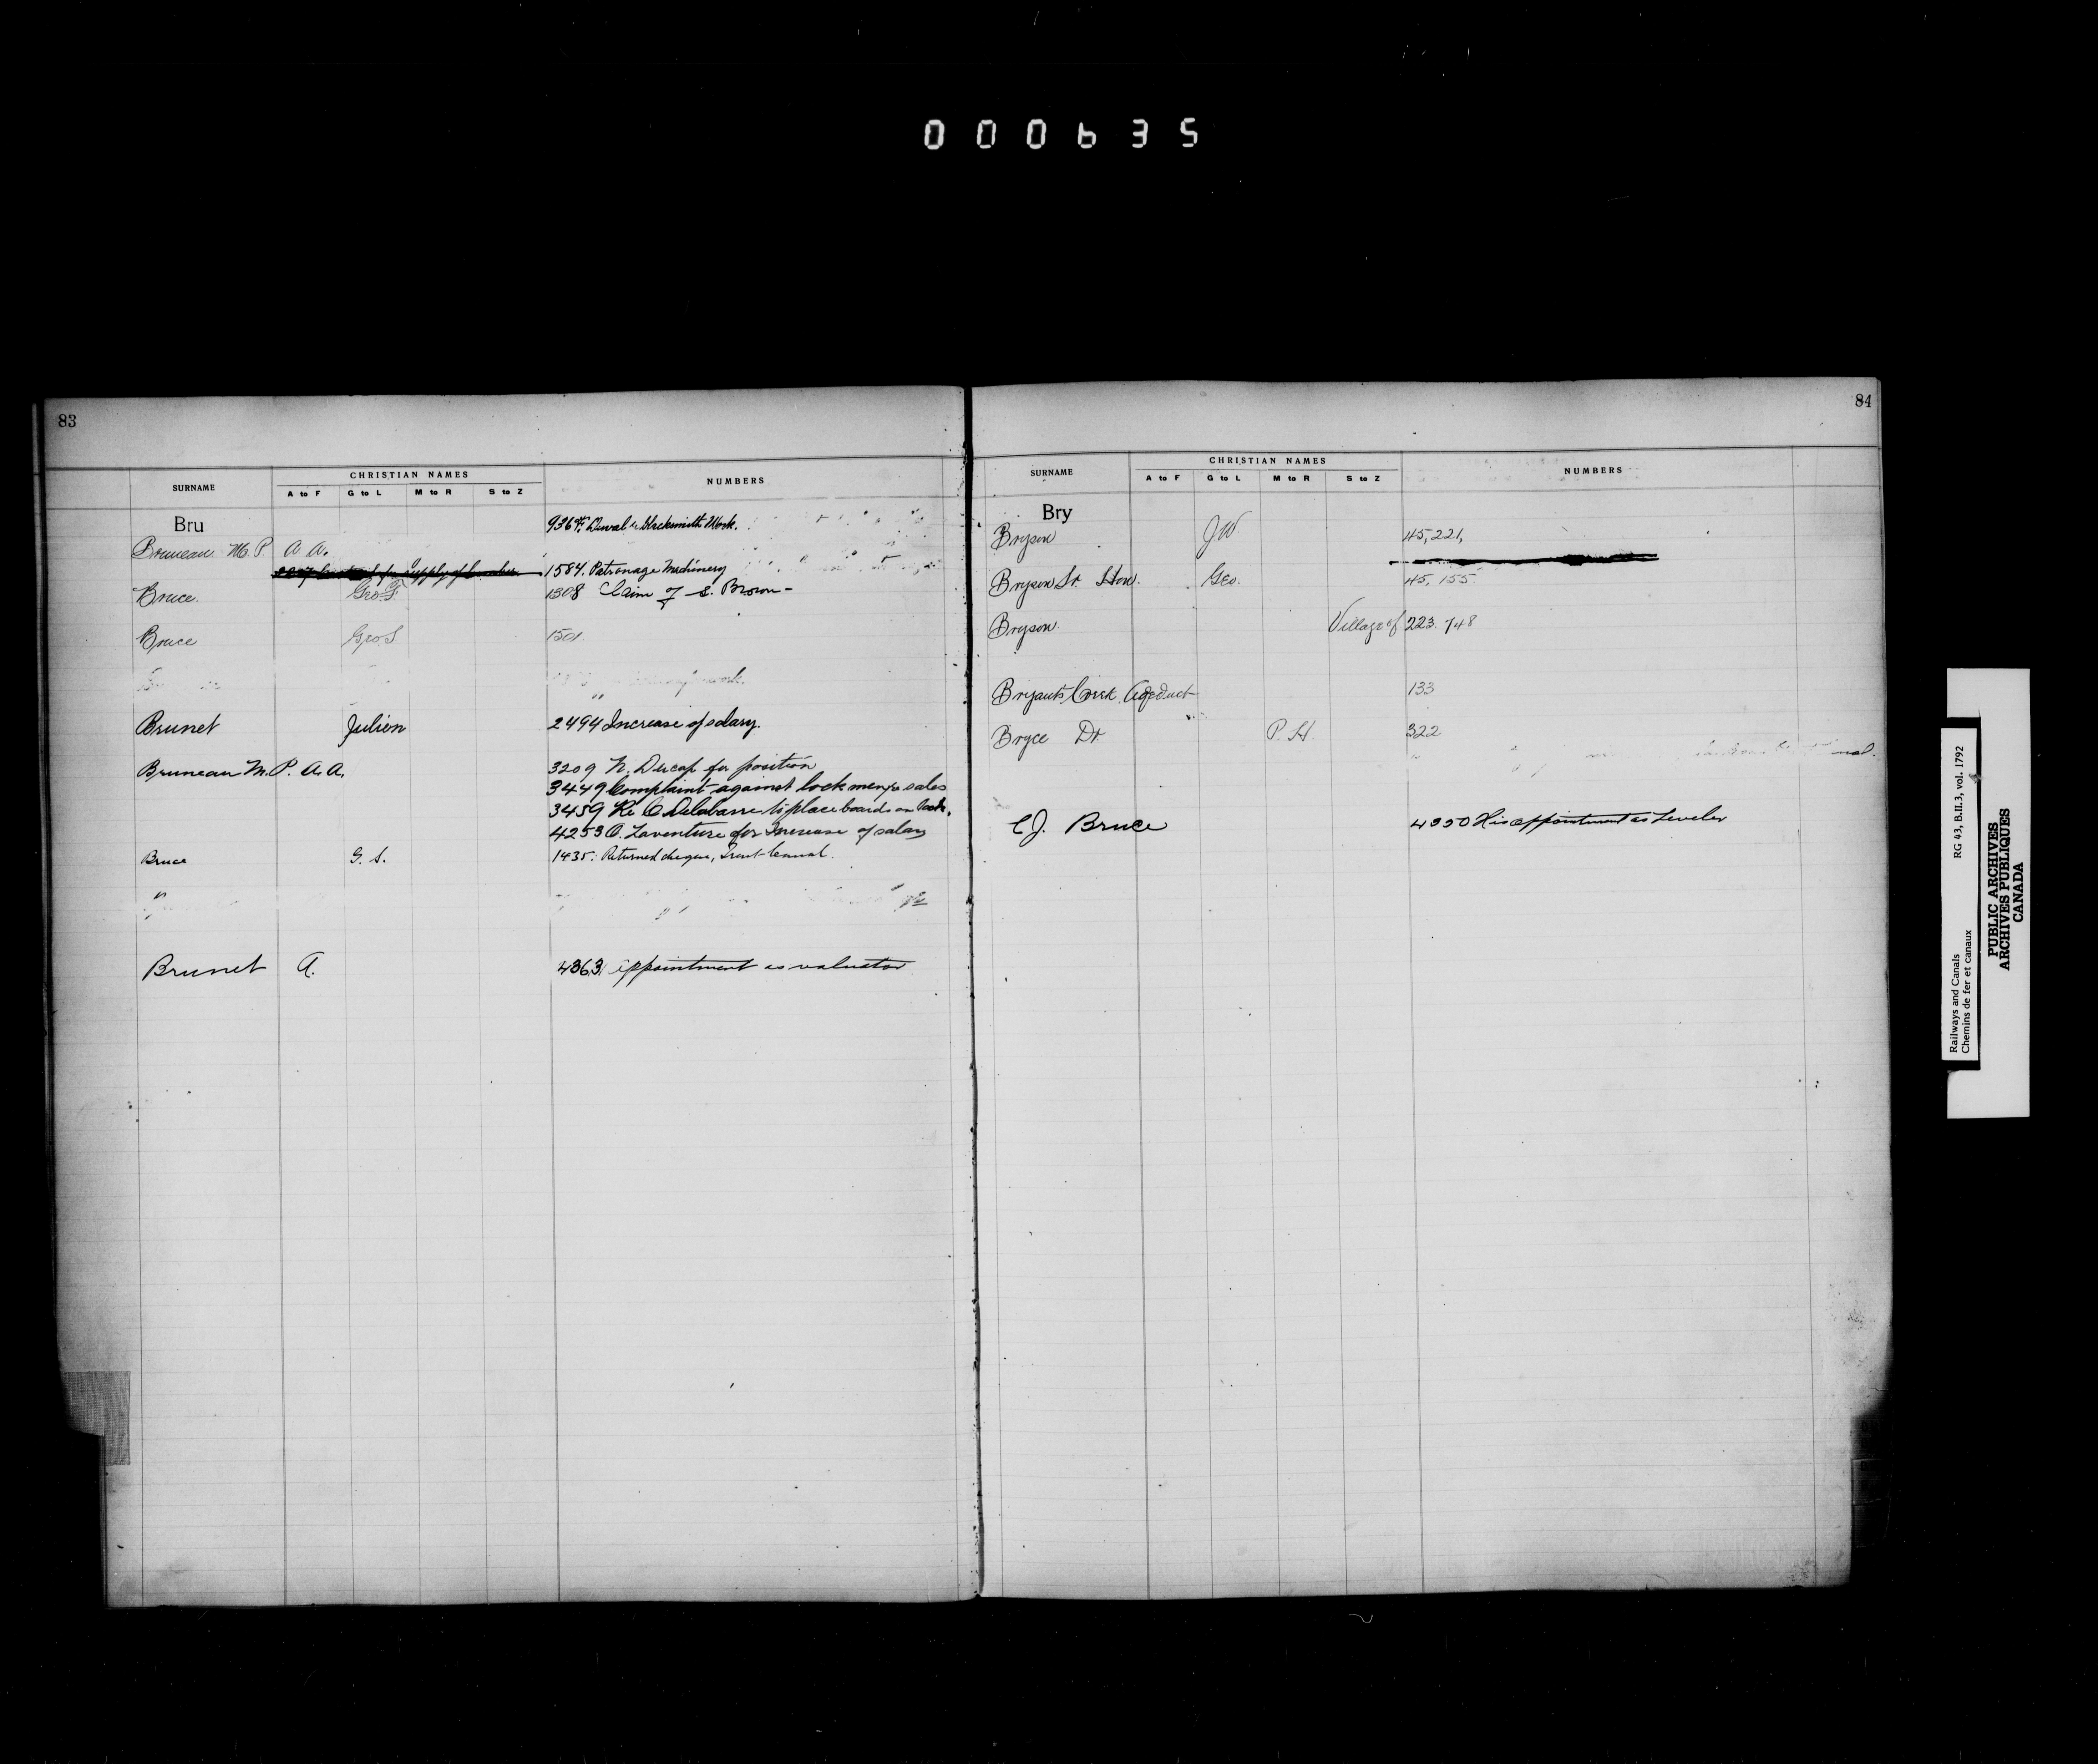 000635
83
SURNAME
CHRISTIAN NAMES
A to F G to L M to R S to Z
NUMBERS
Bru
936 Duval Blacksmith Work.
Bruneau M.P. A A.
1584. Patronage Machinery
for supply of
Bruce. Geo. F.
1308 Claim of S. Brown -
Bruce Geo. S
1501
work.
Brunet Julien 2494 Increase of salary.
Bruneau M.P. A.A. 3209 N. Ducap for position
3449 Complaint against lockmen sales
3459 Re C Delabarre to place boards on
4253 O. Laventure for Increase of salary
Bruce G. S. 1435. Returned cheque, Trent Canal.
"
Brunet A. 4363 appointment as valuator
84
SURNAME
CHRISTIAN NAMES
A to F G to L M to R S to Z
NUMBERS
Bry
Bryson J W. 45,221,
Bryson Sr. Hon. Geo. 45,155
Bryson Village of 223. 748
Bryants Creek Aqeduct 133
Bryce Dr. P. H. 322
C J. Bruce 4350 His appointment as Leveler
Railways and Canals RG 43, B.II.3, vol. 1792
Chemins de fer et canaux
PUBLIC ARCHIVES
ARCHIVES PUBLIQUES
CANADA